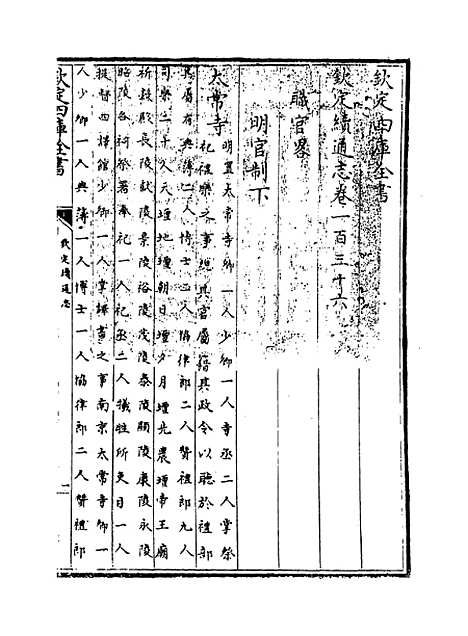 欽定四庫全書
欽定續通志卷一百三十六
職官畧
明官制下
太常寺明置太常寺卿一人少卿一人寺丞二人掌祭
祀禮樂之事總其官屬籍其政令以聽於禮部
其屬有典簿二人博士二人協律郎二人贊禮郎九人
司樂二十人天壇地壇朝日壇夕月壇先農壇帝王廟
祈穀殿長陵獻陵景陵裕陵茂陵泰陵顯陵康陵永陵
昭陵各祠祭署奉祀一人祀丞二人犧牲所吏目一人
提督四譯館少卿一人掌譯書之事南京太常寺卿一
人少卿一人典簿一人博士一人協律郎二人贊禮郎
欽定四庫全書
欽定續通志